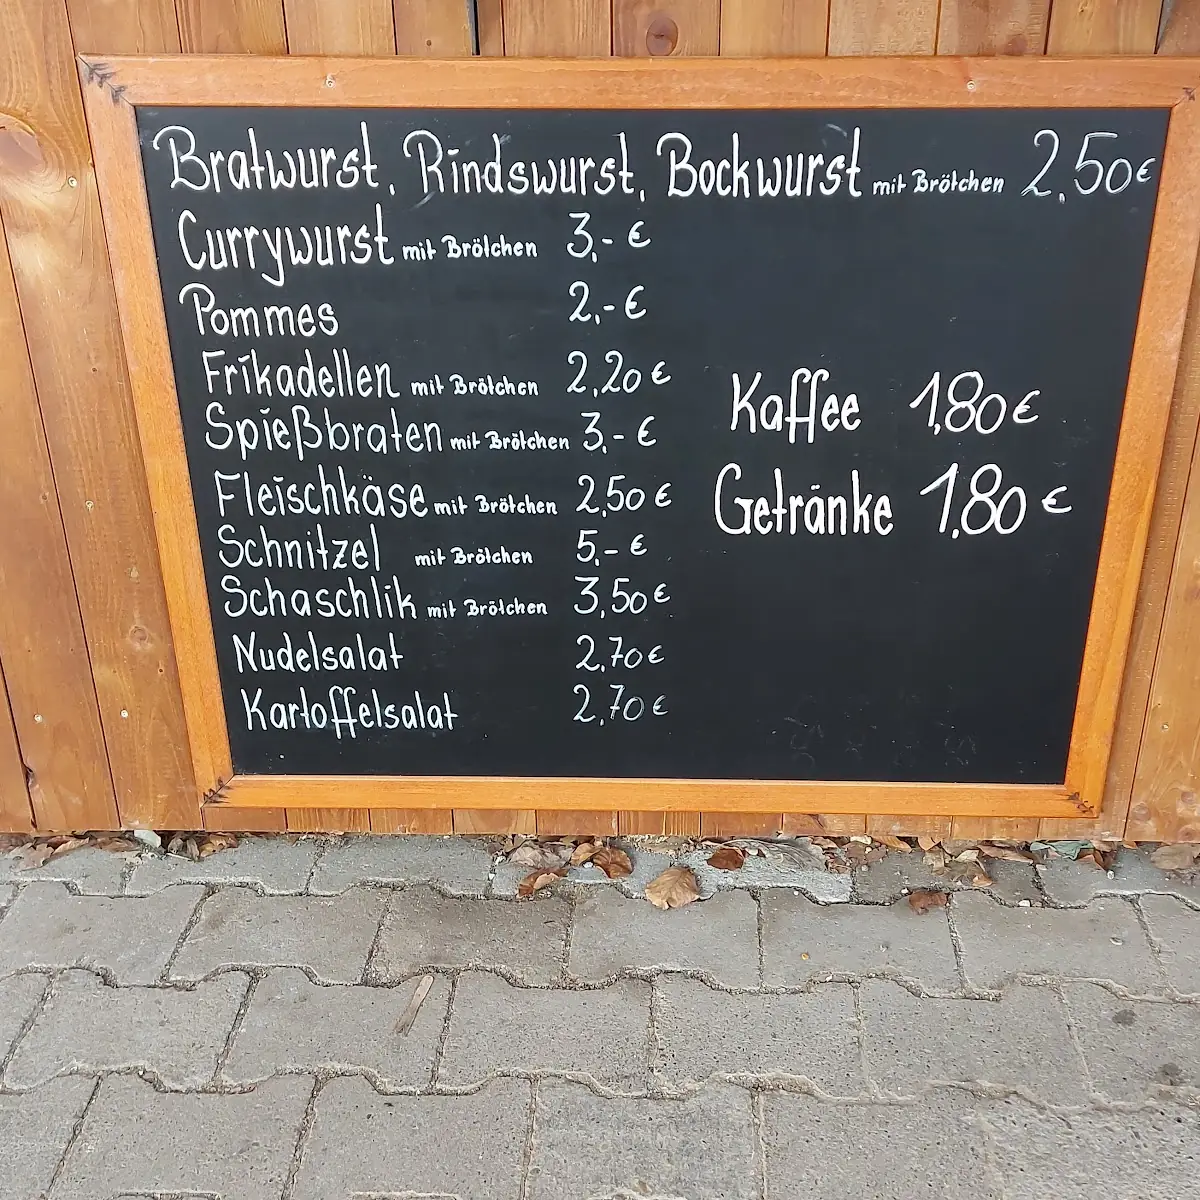 Bratwurst, Rindswurst, Bockwurst mit Brötchen 2,50€
Currywurst mit Brötchen 3,- €
Pommes 2,- €
Frikadellen mit Brötchen 2,20 €
Spießbraten mit Brötchen 3,- €
Fleischkäse mit Brötchen 2,50 €
Schnitzel mit Brötchen 5,- €
Schaschlik mit Brötchen 3,50 €
Nudelsalat 2,70 €
Kartoffelsalat 2,70 €
Kaffee 1,80 €
Getränke 1,80 €